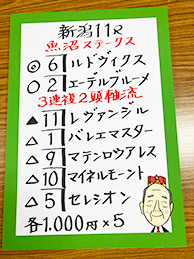 新潟11R
魚沼ステークス
◎ 6 ルドヴィクス
○ 2 エーデルブルーメ
3連複2頭軸流
▲ 11 レヴァンジル
△ 1 バレエマスター
△ 9 マテンロウアレス
△ 10 マイネルモーント
△ 5 セレシオン
各1,000円×5